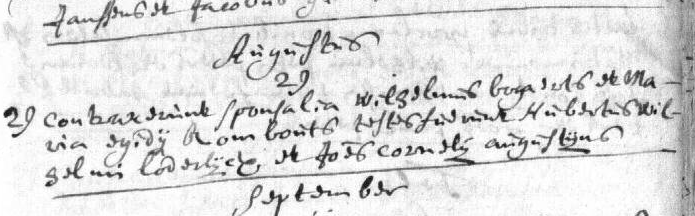 Janssens et Jacobus
Augustus
29
29 contraxerunt sponsalia Wilhelmus bogaerts et Ma-
ria egidij Rombouts testes fuerunt Hubertus Wil-
helmi loderijcx et Joes cornelij augustijns
September